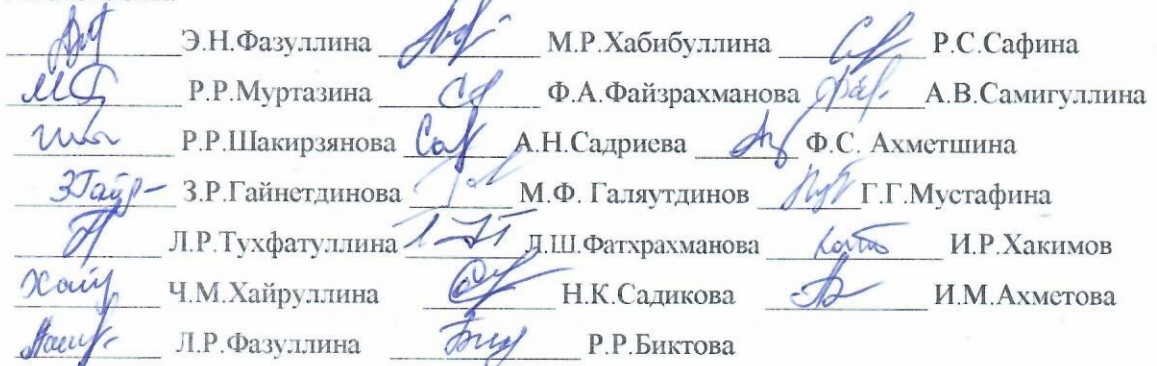 Э.Н.Фазуллина М.Р.Хабибуллина Р.С.Сафина
Р.Р.Муртазина Ф.А.Файзрахманова А.В.Самигуллина
Р.Р.Шакирзянова А.Н.Садриева Ф.С. Ахметшина
З.Р.Гайнетдинова М.Ф. Галяутдинов Г.Г.Мустафина
Л.Р.Тухфатуллина Л.Ш.Фатхрахманова И.Р.Хакимов
Ч.М.Хайруллина Н.К.Садикова И.М.Ахметова
Л.Р.Фазуллина Р.Р.Биктова